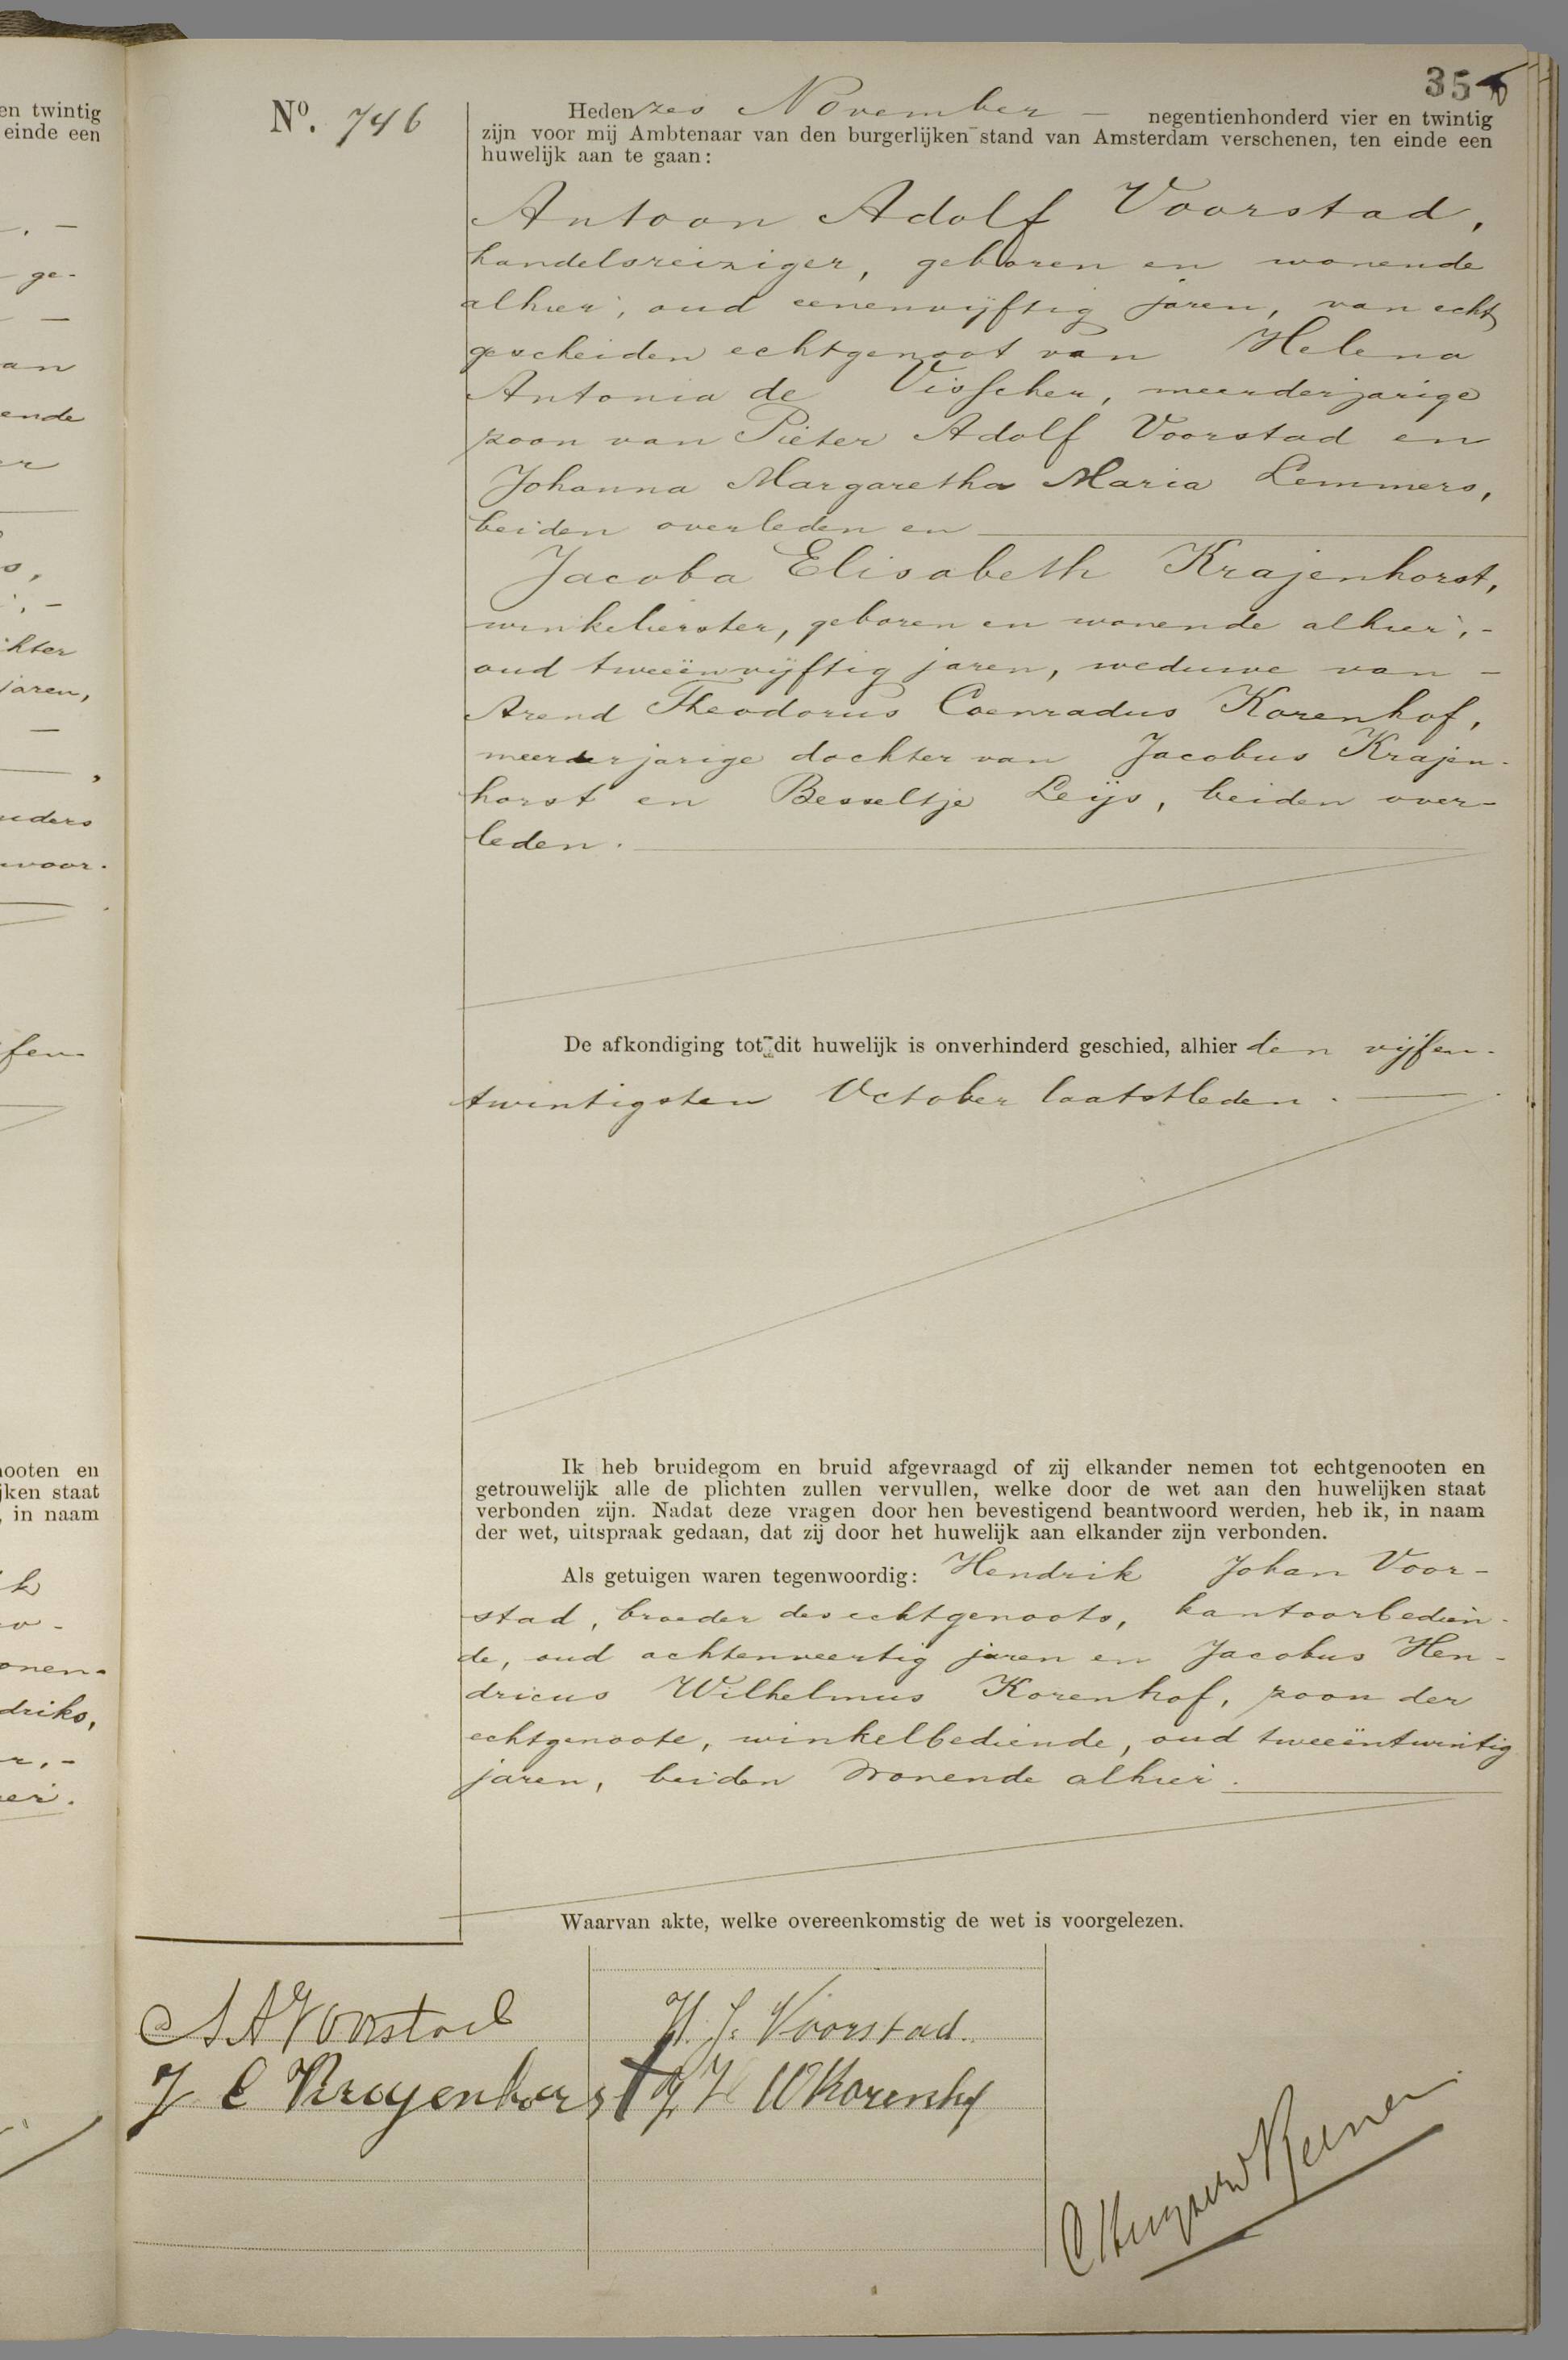 35
en twintig
einde een
ge-
an
ende
er
hter
jaren,
nders
voor.
fen-
nooten en
jken staat
, in naam
onen-
driks,
No. 746
Heden zes November - negentienhonderd vier en twintig
zijn voor mij Ambtenaar van den burgerlijken stand van Amsterdam verschenen, ten einde een
huwelijk aan te gaan:
Antoon Adolf Voorstad,
handelsreiziger, geboren en wonende
alhier, oud eenenvijftig jaren, van echt
gescheiden echtgenoot van Helena
Antonia de Visscher, meerderjarige
zoon van Pieter Adolf Voorstad en
Johanna Margaretha Maria Lemmers,
beiden overleden en
Jacoba Elisabeth Krajenhorst,
winkelierster, geboren en wonende alhier,-
oud tweeënvijftig jaren, weduwe van -
Arend Theodorus Coenradus Korenhof,
meerderjarige dochter van Jacobus Krajen-
horst en Besseltje Leijs, beiden over-
leden.
De afkondiging tot dit huwelijk is onverhinderd geschied, alhier den vijfen-
twintigsten October laatstleden.
Ik heb bruidegom en bruid afgevraagd of zij elkander nemen tot echtgenooten en
getrouwelijk alle de plichten zullen vervullen, welke door de wet aan den huwelijken staat
verbonden zijn. Nadat deze vragen door hen bevestigend beantwoord werden, heb ik, in naam
der wet, uitspraak gedaan, dat zij door het huwelijk aan elkander zijn verbonden.
Als getuigen waren tegenwoordig: Hendrik Johan Voor-
stad, broeder des echtgenoots, kantoorbedien-
de, oud achtenveertig jaren en Jacobus Hen-
dricus Wilhelmus Korenhof, zoon der
echtgenoote, winkelbediende, oud tweeëntwintig
jaren, beiden wonende alhier.
Waarvan akte, welke overeenkomstig de wet is voorgelezen.
A A Voorstad
H. J. Voorstad.
J E Krayenhorst
J H W Korenhof